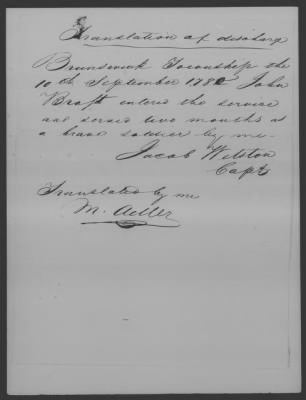 Translation of discharge
Brunswick Township the
10th September 1782 John
Braft entered the service
and served two months as
a brave soldier by me.
Jacob Wetston
Capt
Translated by me
M. Adler